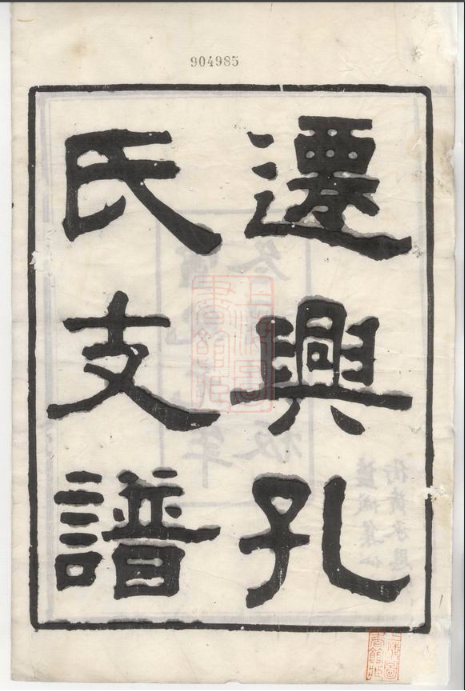 904985
遷興孔
氏支譜